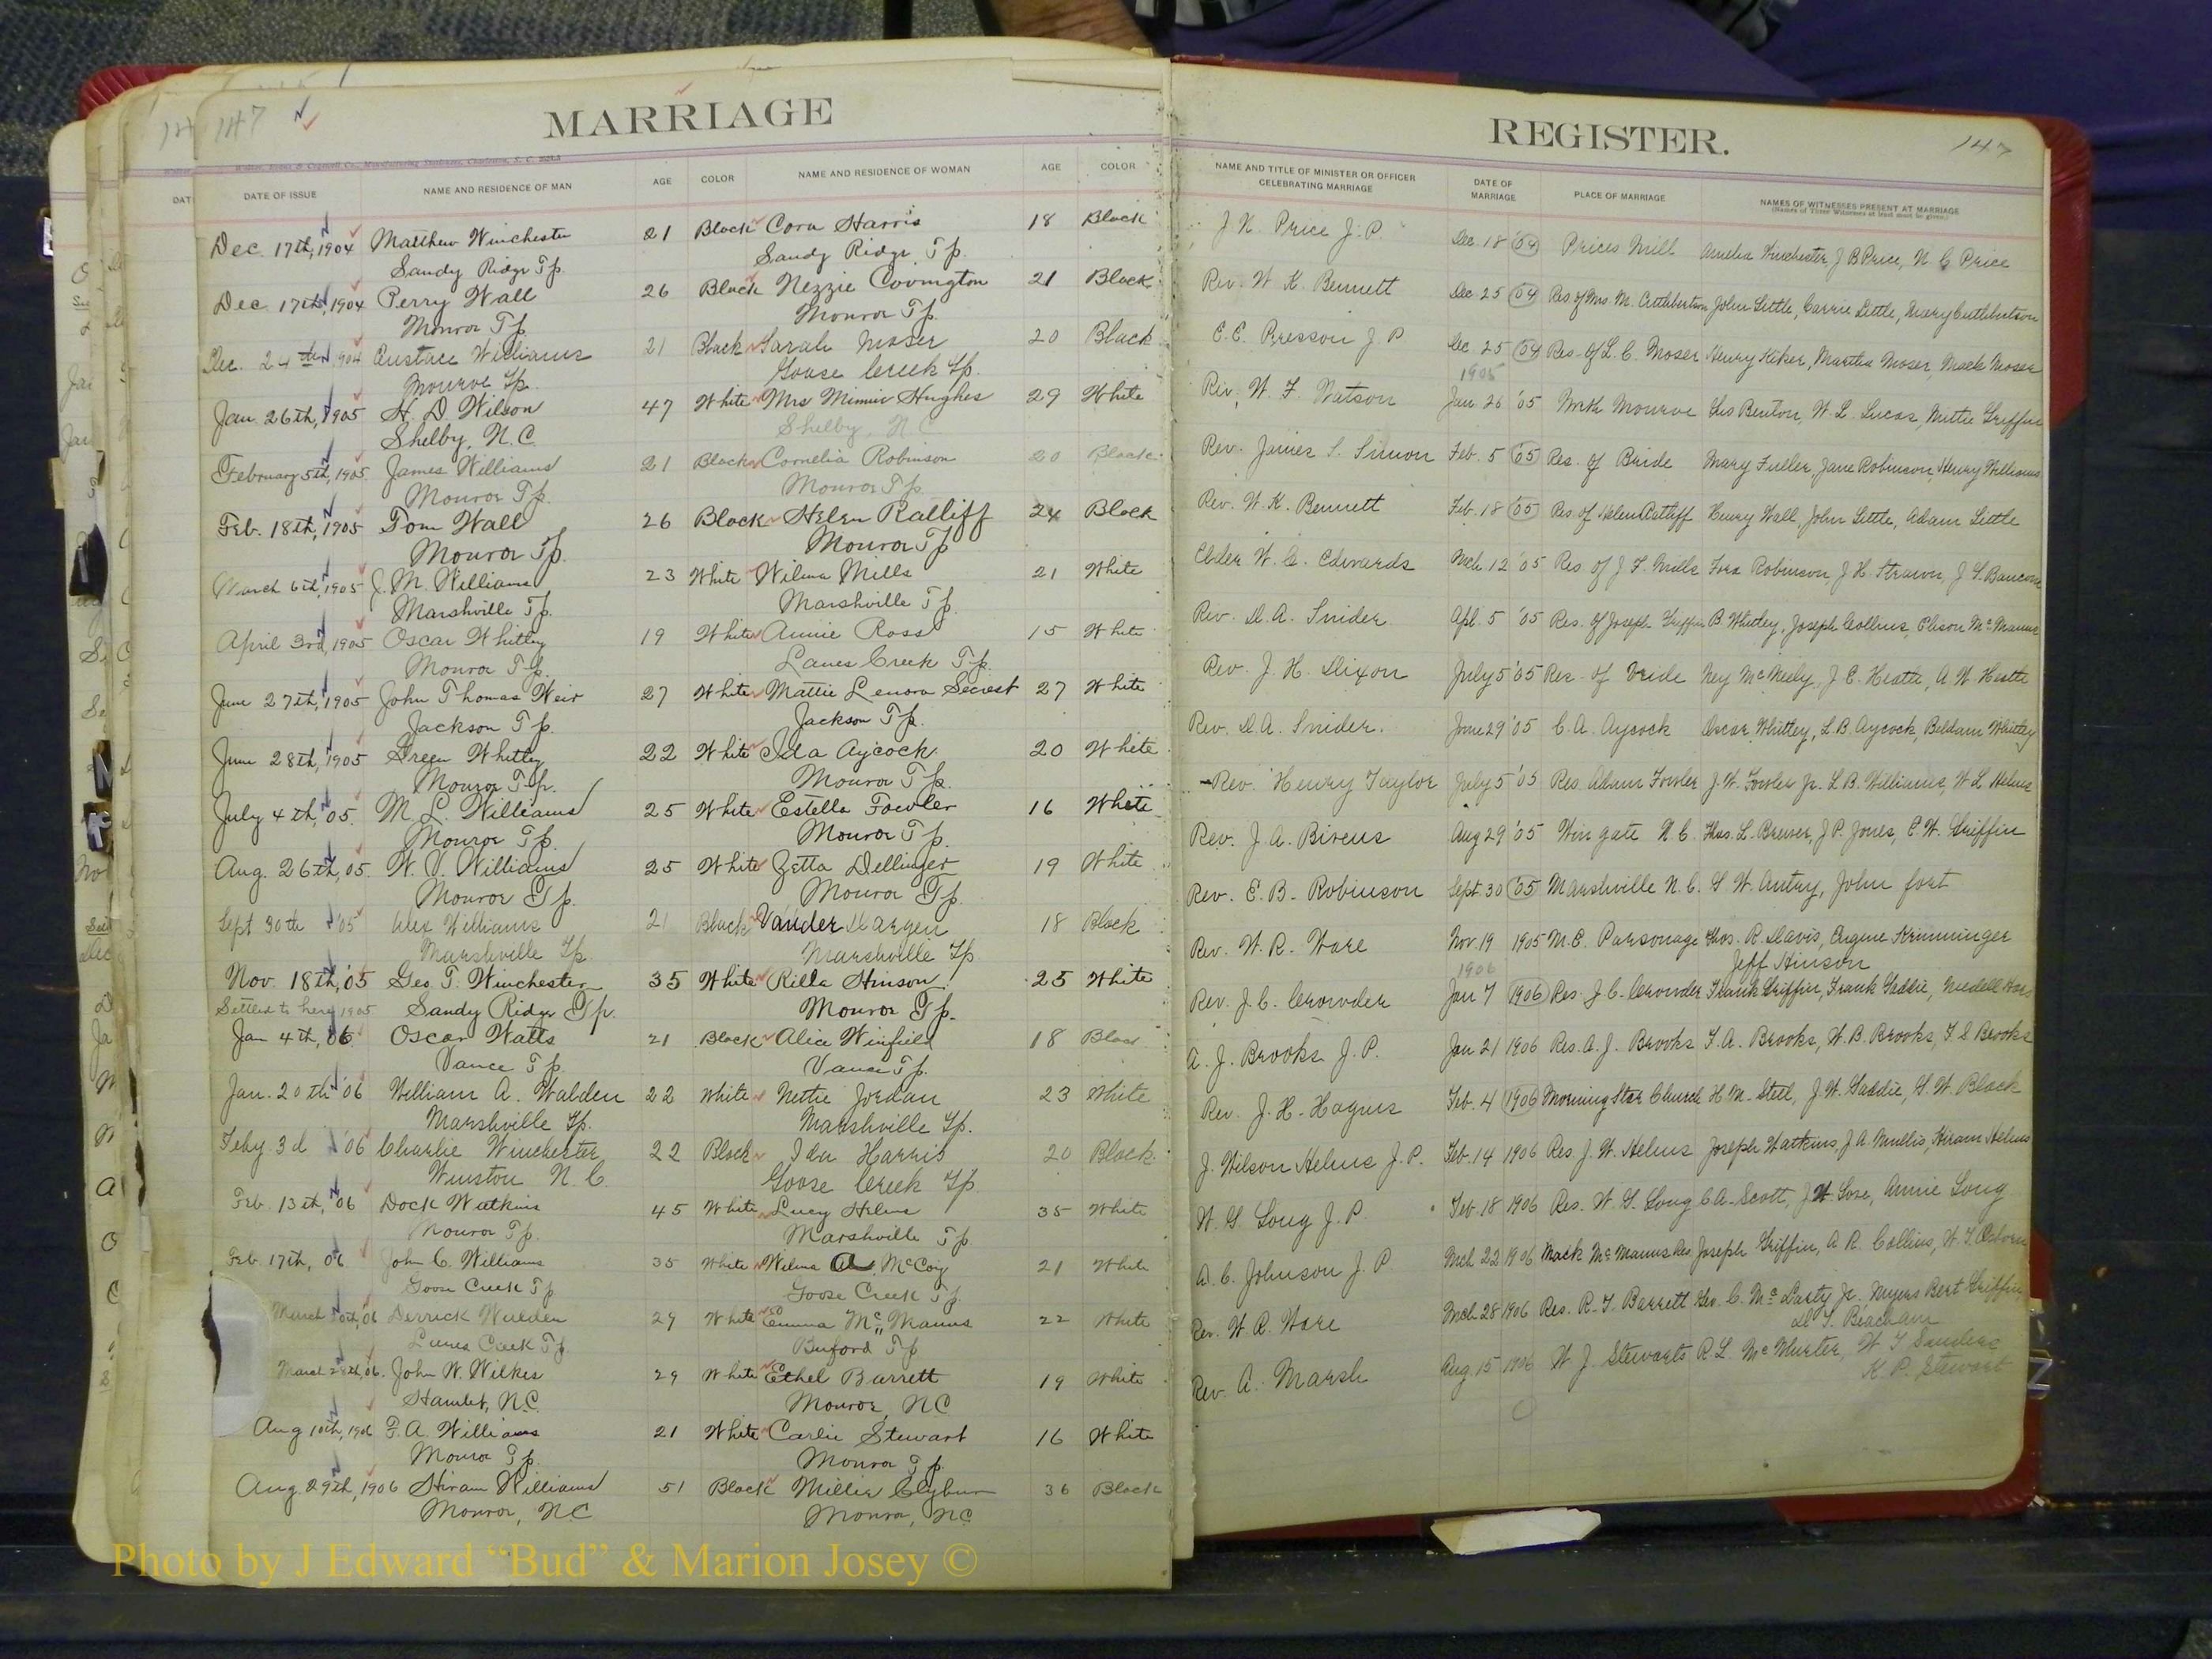 147
MARRIAGE
DATE OF ISSUE NAME AND RESIDENCE OF MAN AGE COLOR NAME AND RESIDENCE OF WOMAN AGE COLOR
Dec. 17th, 1904 Matthew Winchester 21 Black Cora Harris 18 Black
Sandy Ridge Tp. Sandy Ridge Tp.
Dec. 17th, 1904 Perry Wall 26 Black Nezzie Covington 21 Black
Monroe Tp. Monroe Tp.
Dec. 24th 1904 Eustace Williams 21 Black Sarah Moser 20 Black
Monroe Tp. Goose Creek Tp.
Jan. 26th, 1905 H. D. Wilson 47 White Mrs Minnie Hughes 29 White
Shelby, N.C. Shelby, N.C.
February 5th, 1905 James Williams 21 Black Cornelia Robinson 20 Black
Monroe Tp. Monroe Tp.
Feb. 18th, 1905 Tom Wall 26 Black Helen Ratliff 24 Black
Monroe Tp. Monroe Tp
March 6th, 1905 J. M. Williams 23 White Wilma Mills 21 White
Marshville Tp. Marshville Tp.
April 3rd, 1905 Oscar Whitley 19 White Annie Ross 15 White
Monroe Tp. Lanes Creek Tp.
June 27th, 1905 John Thomas Weir 27 White Mattie Lenora Secrest 27 White
Jackson Tp. Jackson Tp.
June 28th, 1905 Green Whitley 22 White Ida Aycock 20 White
Monroe Tp. Monroe Tp.
July 4th, '05. M. L. Williams 25 White Estella Fowler 16 White
Monroe Tp. Monroe Tp.
Aug. 26th, 05. W. V. Williams 25 White Zetta Dellinger 19 White
Monroe Tp. Monroe Tp.
Sept 30th '05 Alex Williams 21 Black Vander Dargen 18 Black
Marshville Tp. Marshville Tp.
Nov. 18th, '05 Geo. T. Winchester 35 White Rilla Hinson 25 White
Settled to here 1905 Sandy Ridge Tp. Monroe Tp.
Jan 4th, 06 Oscar Watts 21 Black Alice Winfield 18 Black
Vance Tp. Vance Tp.
Jan. 20th '06 William A. Walden 22 White Nettie Jordan 23 White
Marshville Tp. Marshville Tp.
Feby 3d '06 Charlie Winchester 22 Black Ida Harris 20 Black
Winston N. C. Goose Creek Tp.
Feb. 13th, '06 Dock Watkins 45 White Lucy Helms 35 White
Monroe Tp. Marshville Tp
Feb. 17th, 06 John C. Williams 35 White Wilma A. McCoy 21 White
Goose Creek Tp Goose Creek Tp.
March 06 Derrick Walden 29 White Emma McManus 22 White
Lanes Creek Tp. Buford Tp
March 28th, 06. John W. Wilkes 29 White Ethel Barrett 19 White
Hamlet, N.C. Monroe, NC
Aug 10th, 1906 F. A. Williams 21 White Carlie Stewart 16 White
Monroe Tp. Monroe Tp.
Aug. 29th, 1906 Hiram Williams 51 Black Millie Clyburn 36 Black
Monroe, NC Monroe, NC
REGISTER.
147
NAME AND TITLE OF MINISTER OR OFFICER CELEBRATING MARRIAGE DATE OF MARRIAGE PLACE OF MARRIAGE NAMES OF WITNESSES PRESENT AT MARRIAGE
(Names of Three Witnesses at least must be given)
J. N. Price J. P. Dec. 18 '04 Prices Mill Amelia Winchester, J B Price, N C Price
Rev. W. K. Bennett Dec. 25 04 Res of Mrs. M. Cuthbertson John Little, Carrie Little, Mary Cuthbertson
E. E. Presson J P Dec. 25 04 Res. of L. C. Moser Henry Kiker, Martha Moser, Mack Moser
1905
Rev. W. F. Watson Jan. 26 '05 North Monroe Les Benton, W. L. Lucas, Mittie Griffin
Rev. James S. Simon Feb. 5 '05 Res. of Bride Mary Fuller, Jane Robinson, Henry Williams
Rev. W. K. Bennett Feb. 18 '05 Res. of Helen Ratliff Henry Wall, John Little, Adam Little
Elder W. C. Edwards Mch. 12 '05 Res of J. F. Mills Fora Robinson, J. H. Strawn, J. S. Baucom
Rev. D. A. Snider Apl. 5 '05 Res. of Joseph Griffin B. Whitley, Joseph Collins, Elison McManus
Rev. J. H. Dixon July 5 '05 Res. of Bride Ney McNeely, J. E. Heath, A. W. Heath
Rev. D. A. Snider. June 29 '05 C. A. Aycock Oscar Whitley, L. B. Aycock, Beldam Whitley
Rev. Henry Taylor July 5 '05 Res. Adam Fowler J. W. Fowler Jr. L. B. Williams, W. L. Helms
Rev. J. A. Bivens Aug 29 '05 Wingate N. C. Thos. L. Brewer, J. P. Jones, E. W. Griffin
Rev. E. B. Robinson Sept. 30 '05 Marshville N. C. G. W. Autry, John fort
Rev. W. R. Ware Nov. 19 1905 M. E. Parsonage Thos. R. Davis, Eugene Krimminger
Jeff Hinson
1906
Rev. J. C. Crowder Jan 7 1906 Res. J C. Crowder Frank Griffin, Frank Gaddie,
A. J. Brooks J. P. Jan 21 1906 Res. A. J. Brooks F. A. Brooks, W. B. Brooks, F. S Brooks
Rev. J. H. Hagins Feb. 4 1906 Morning Star Church H. M. Steel, J. W. Gaddie, G. W. Black
J. Wilson Helms J. P. Feb. 14 1906 Res. J. W. Helms Joseph Watkins, J. A. Mullis, Hiram Helms
W. G. Long J. P. Feb. 18 1906 Res. W. G. Long C A. Scott, J W Love, Annie Long
A. C. Johnson J. P. Mch 22 1906 Mack McManus Res Joseph Griffin, A R. Collins, W. T. Osborn
Rev. W. R. Ware Mch 28 1906 Res. R. T. Barrett Geo. C. McLarty Jr. Myers Bert Griffin
D. T. Beacham
Rev. A. Marsh Aug. 15 1906 W J. Stewarts R L. McWhirter, W T Sanders
K. P. Stewart
Photo by J Edward “Bud” & Marion Josey ©